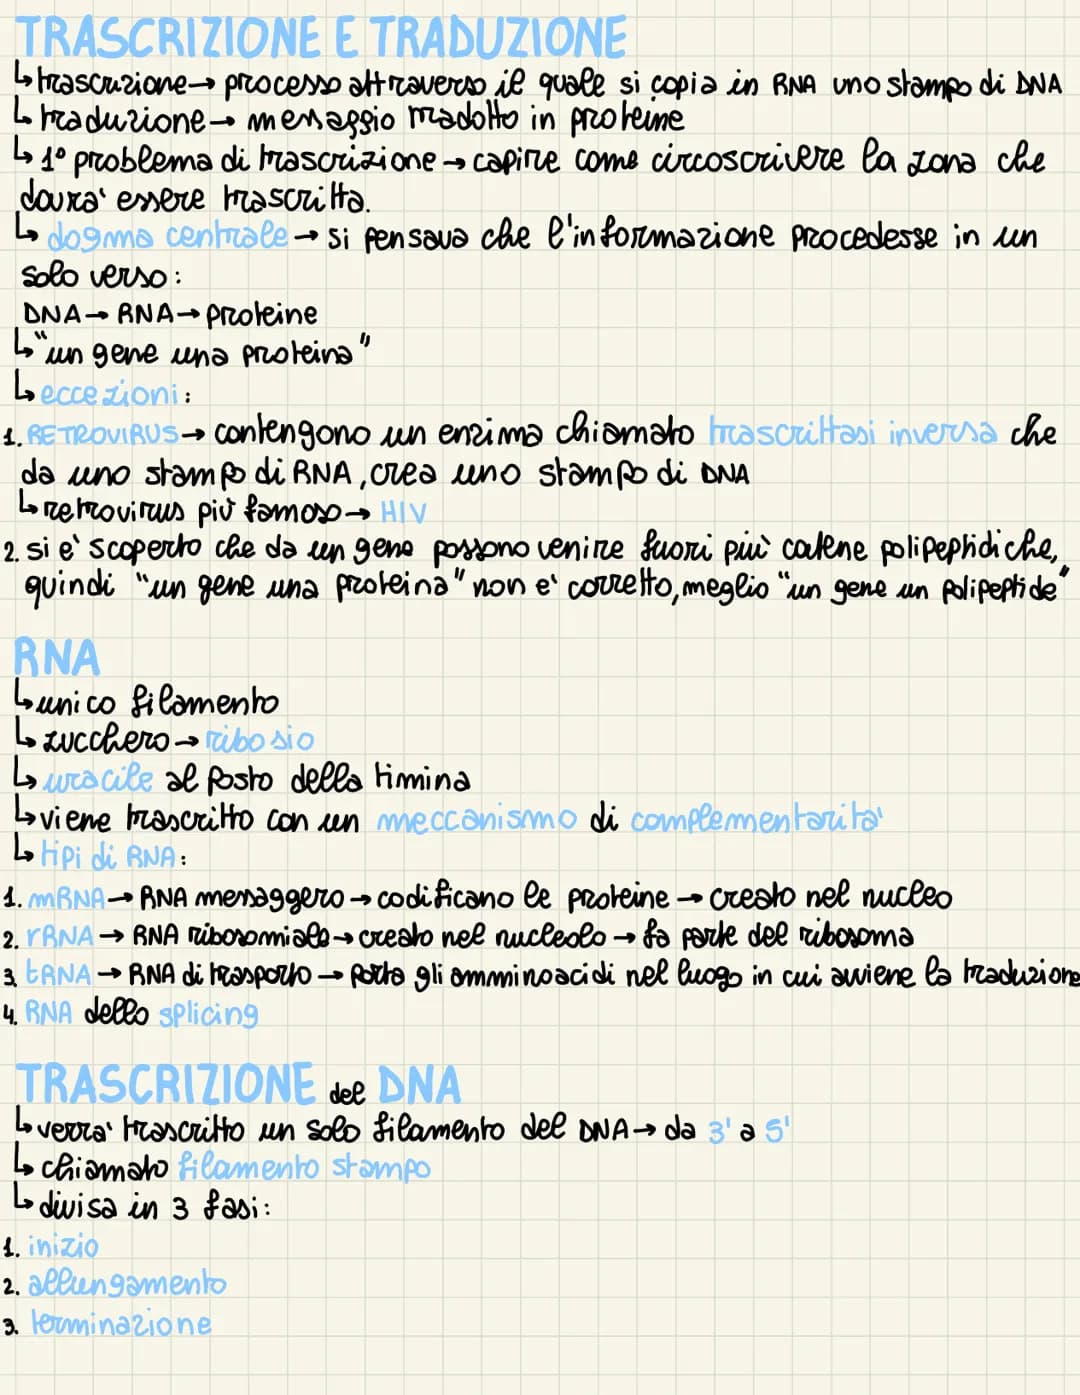 TRASCRIZIONE E TRADUZIONE
↳ trascrizione → processo attraverso il quale si copia in RNA uno stampo di DNA
↳ traduzione → messaggio tradotto in proteine
↳ 1° problema di trascrizione → capire come circoscrivere la zona che
dovra' essere trascritta.
↳ dogma centrale → si pensava che l'informazione procedesse in un
solo verso:
DNA → RNA → proteine
↳ "un gene una proteina"
↳ eccezioni:
1. RETROVIRUS → contengono un enzima chiamato trascrittasi inversa che
da uno stampo di RNA, crea uno stampo di DNA
↳ retrovirus più famoso → HIV
2. si e' scoperto che da un gene possono venire fuori più catene polipeptidiche,
quindi "un gene una proteina" non e' corretto, meglio "un gene un polipeptide"
RNA
↳ unico filamento
↳ zucchero → ribosio
↳ uracile al posto della timina
↳ viene trascritto con un meccanismo di complementarita'
↳ tipi di RNA:
1. mRNA → RNA messaggero → codificano le proteine → creato nel nucleo
2. rRNA → RNA ribosomiale → creato nel nucleolo → fa parte del ribosoma
3. tRNA → RNA di trasporto → porta gli amminoacidi nel luogo in cui avviene la traduzione
4. RNA dello splicing
TRASCRIZIONE del DNA
↳ verra' trascritto un solo filamento del DNA → da 3' a 5'
↳ chiamato filamento stampo
↳ divisa in 3 fasi:
1. inizio
2. allungamento
3. terminazione